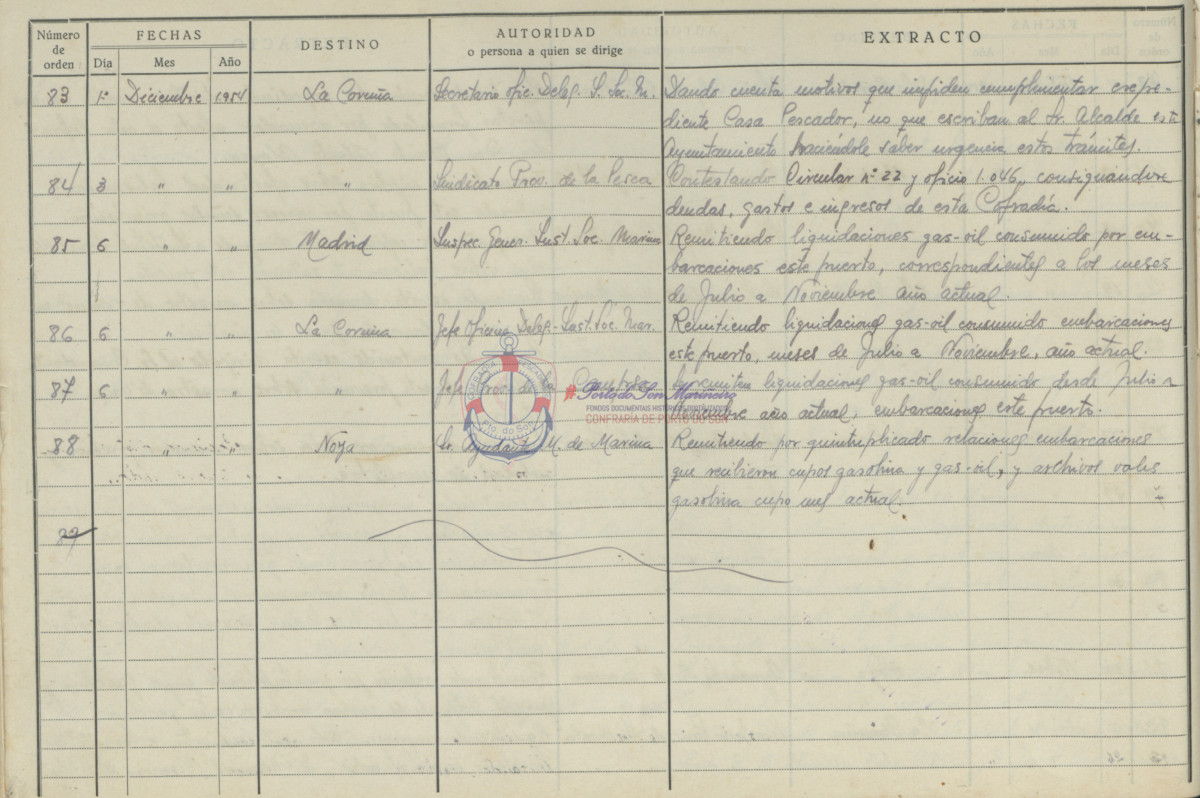 Número de orden FECHAS DESTINO AUTORIDAD o persona a quien se dirige EXTRACTO
Día Mes Año
83 1º Diciembre 1.954 La Coruña Secretario Ofic. Deleg. I. Soc. M. Dando cuenta motivos que impiden cumplimentar expe-
diente Casa Pescador, no que escriban al Sr. Alcalde este
Ayuntamiento haciéndole saber urgencia estos trámites.
84 3 " " " Sindicato Prov. de la Pesca Contestando Circular nº 22 y oficio 1.046, consignandose
deudas, gastos e ingresos de esta Cofradía.
85 6 " " Madrid Inspec. Gener. Inst. Soc. Marina Remitiendo liquidaciones gas-oil consumido por em-
barcaciones este puerto, correspondientes a los meses
de Julio a Noviembre año actual.
86 6 " " La Coruña Jefe Oficina Deleg. Inst. Soc. Mar. Remitiendo liquidaciones gas-oil consumido embarcaciones
este puerto, meses de Julio a Noviembre, año actual.
87 6 " " " Jefe Prov. de liquidaciones gas-oil consumido desde Julio a
Noviembre año actual, embarcaciones este puerto.
88 " " Noya Sr. Ayudante M. de Marina Remitiendo por quintuplicado relaciones embarcaciones
que recibieron cupos gasolina y gas-oil, y archivos vales
gasolina cupo mes actual.
#Porto do Son Mariñeiro
FONDOS DOCUMENTAIS HISTÓRICOS DIGITALIZADOS
CONFRARÍA DE PORTO DO SON
Pto. do Son